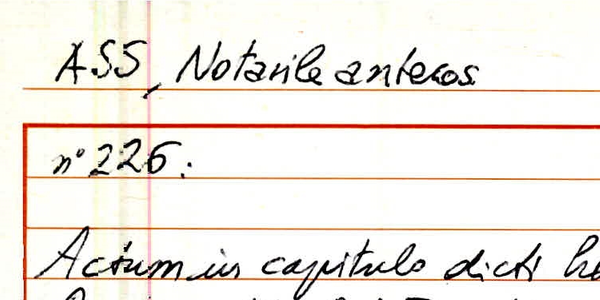 ASS, Notarile antecos.
n° 226:
Actum in capitulo dicti